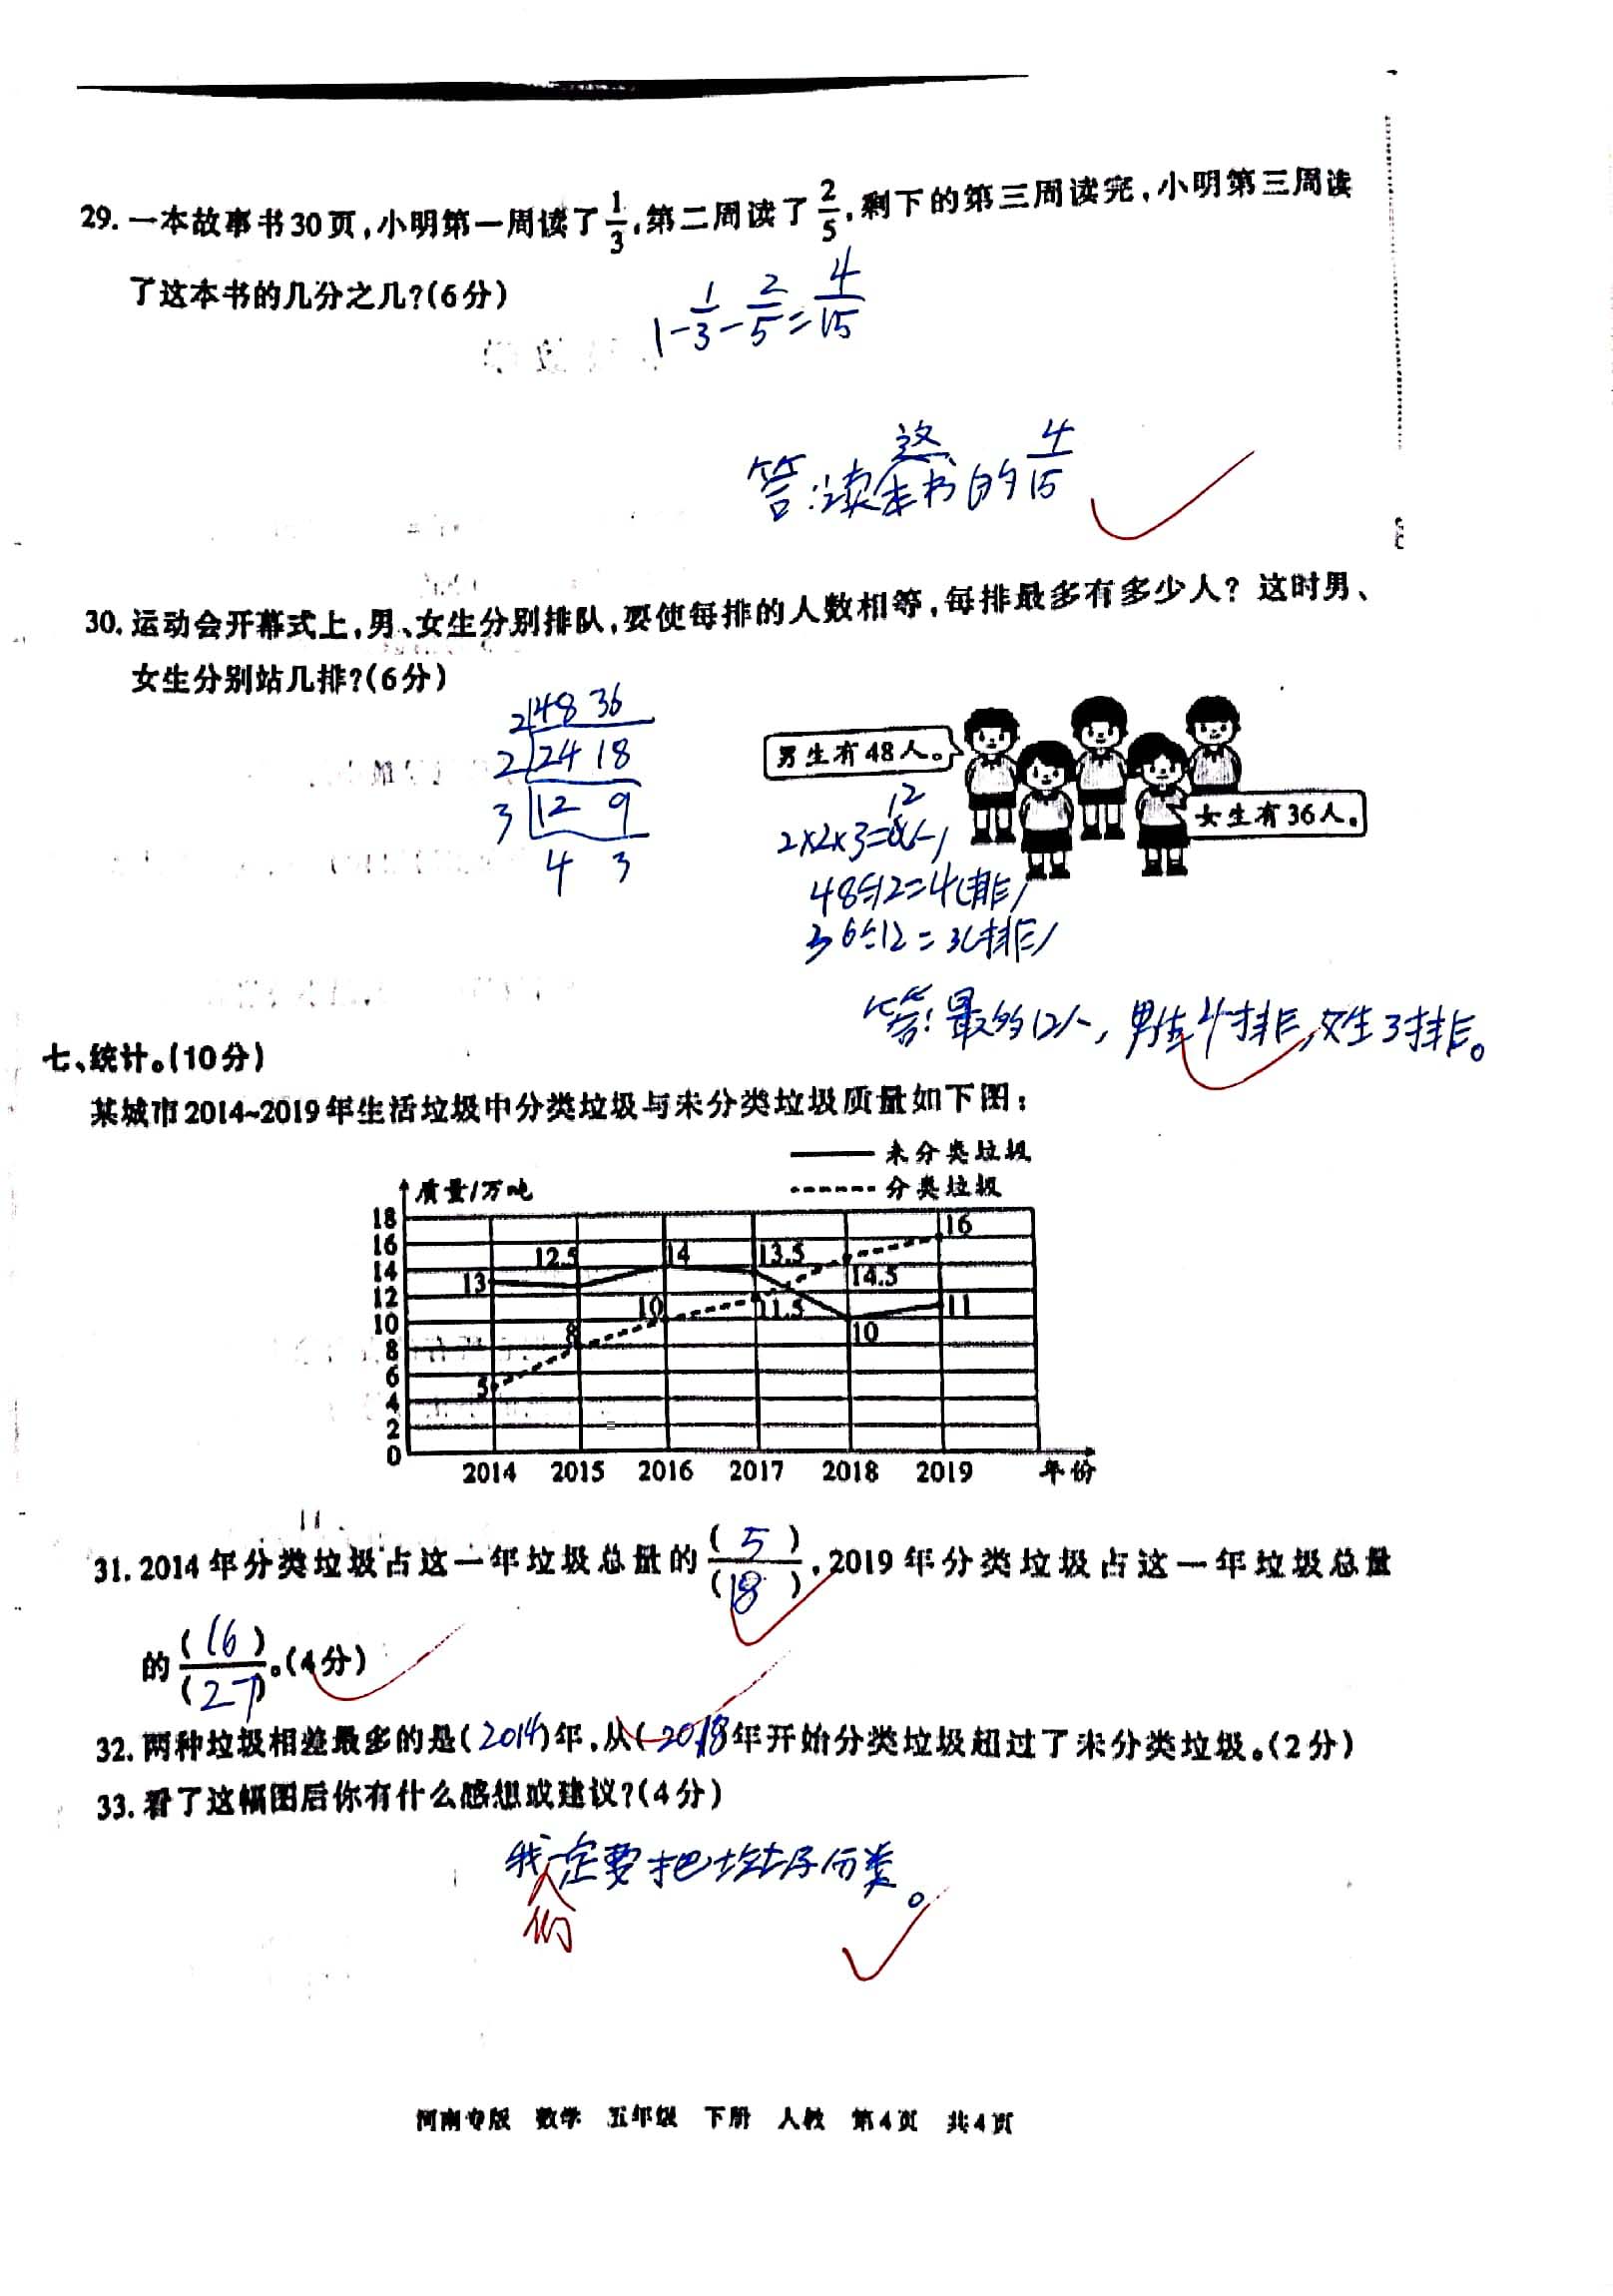 29. 一本故事书30页,小明第一周读了1/3,第二周读了2/5,剩下的第三周读完,小明第三周读
了这本书的几分之几?(6分)
1-1/3-2/5=4/15
答:读这本书的4/15
30. 运动会开幕式上,男、女生分别排队,要使每排的人数相等,每排最多有多少人? 这时男、
女生分别站几排?(6分)
2 48 36
2 24 18
3 12 9
4 3
男生有48人。
女生有36人。
2×2×3=12(人)
48÷12=4(排)
36÷12=3(排)
答:最多12人,男生4排,女生3排。
七、统计。(10分)
某城市2014~2019年生活垃圾中分类垃圾与未分类垃圾质量如下图:
未分类垃圾
分类垃圾
质量/万吨
18
16
14
12
10
8
6
4
2
0
13
12.5
14
13.5
10
11
5
8
10
11.5
14.5
16
2014 2015 2016 2017 2018 2019 年份
31. 2014年分类垃圾占这一年垃圾总量的(5)/(18),2019年分类垃圾占这一年垃圾总量
的(16)/(27)。(4分)
32. 两种垃圾相差最多的是(2014)年,从(2018)年开始分类垃圾超过了未分类垃圾。(2分)
33. 看了这幅图后你有什么感想或建议?(4分)
我们一定要把垃圾分类。
河南专版 数学 五年级 下册 人教 第4页 共4页